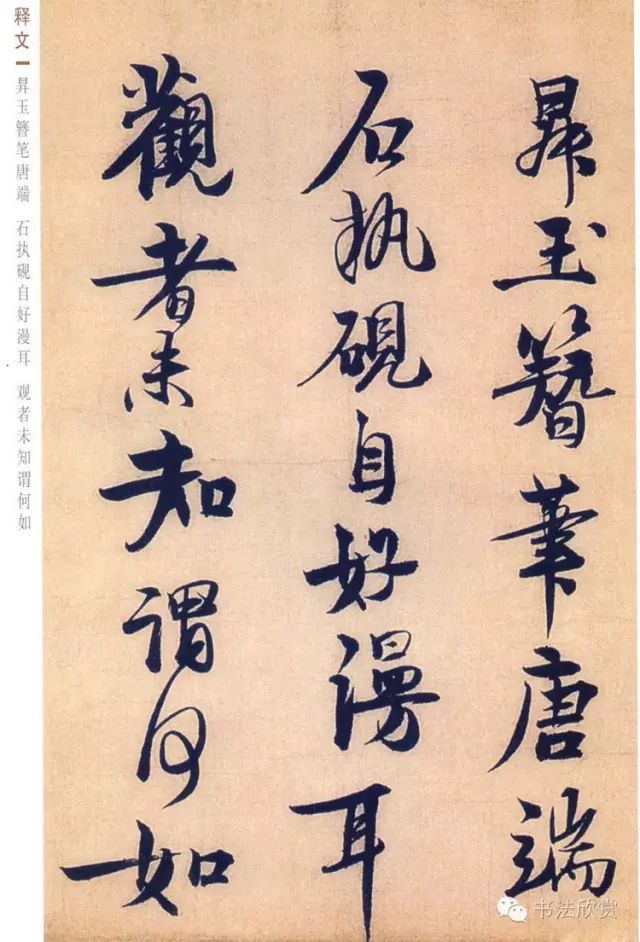 释文
昇玉簪笔唐端 石执砚自好漫耳 观者未知谓何如
昇玉簪筆唐端
石执硯自好漫耳
觀者未知謂何如
书法欣赏